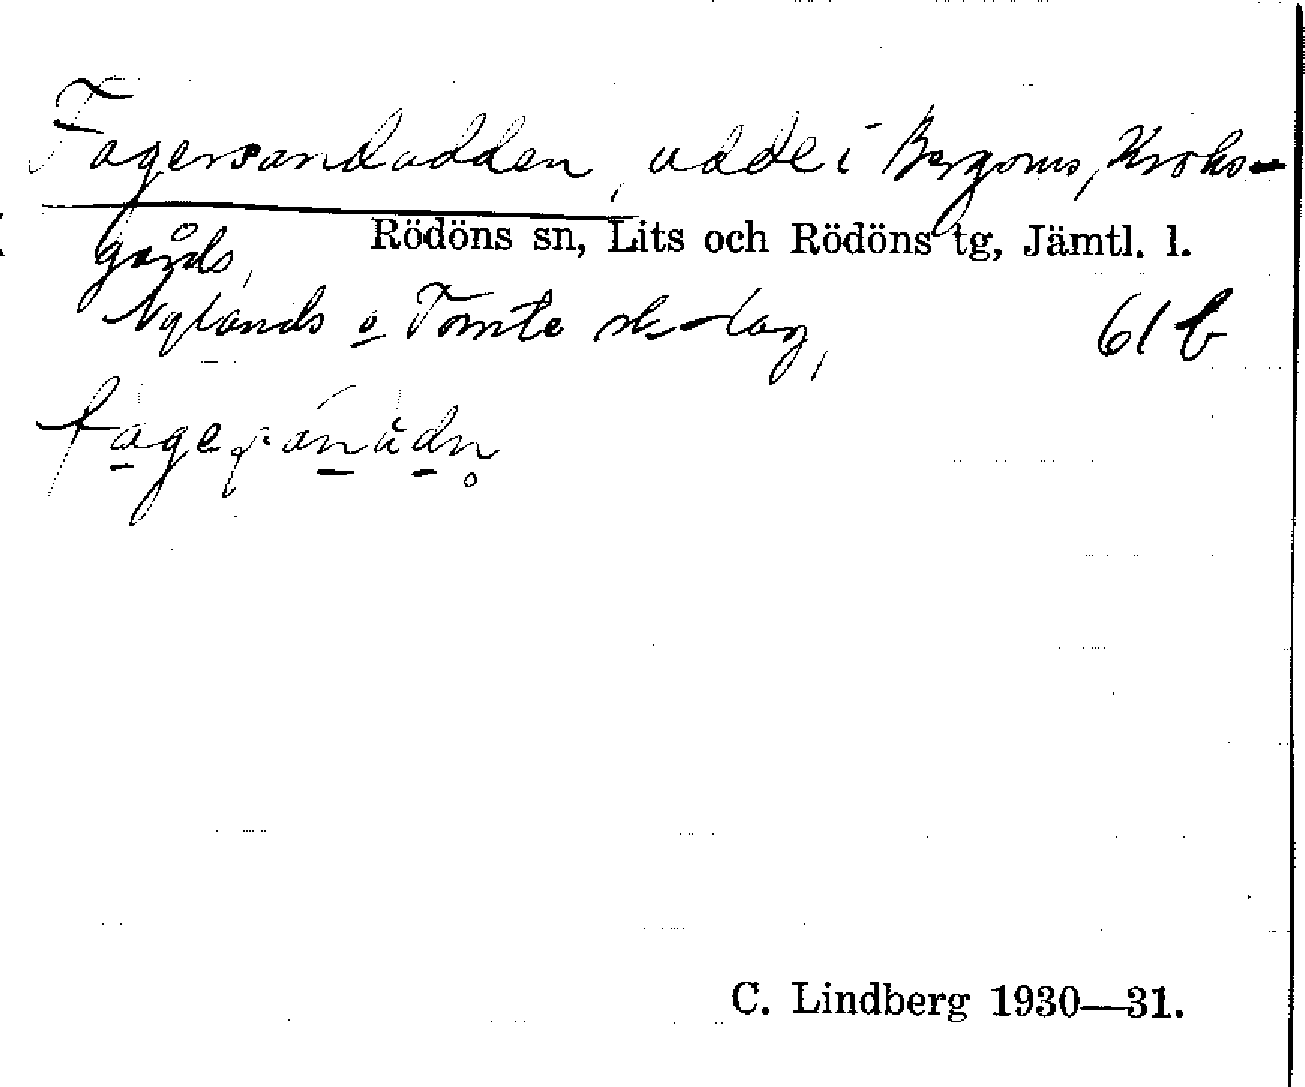 Fagersandudden, udde i Bergoms, Kroks-
gårds,
Rödöns sn, Lits och Rödöns tg, Jämtl. l.
Nylands o Tomte sk-lag,
61 b
C. Lindberg 1930—31.